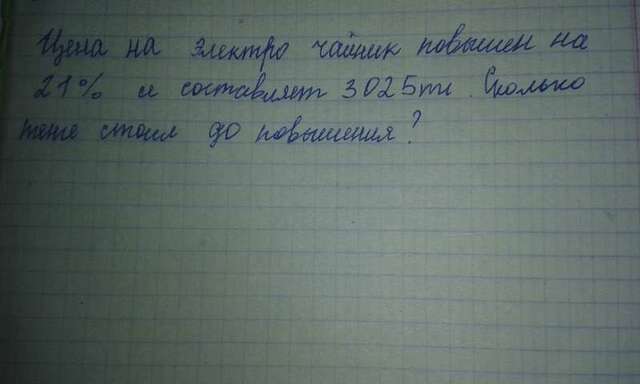 Цена на электро чайник повышен на
21% и составляет 3025тг. Сколько
тенге стоил до повышения?